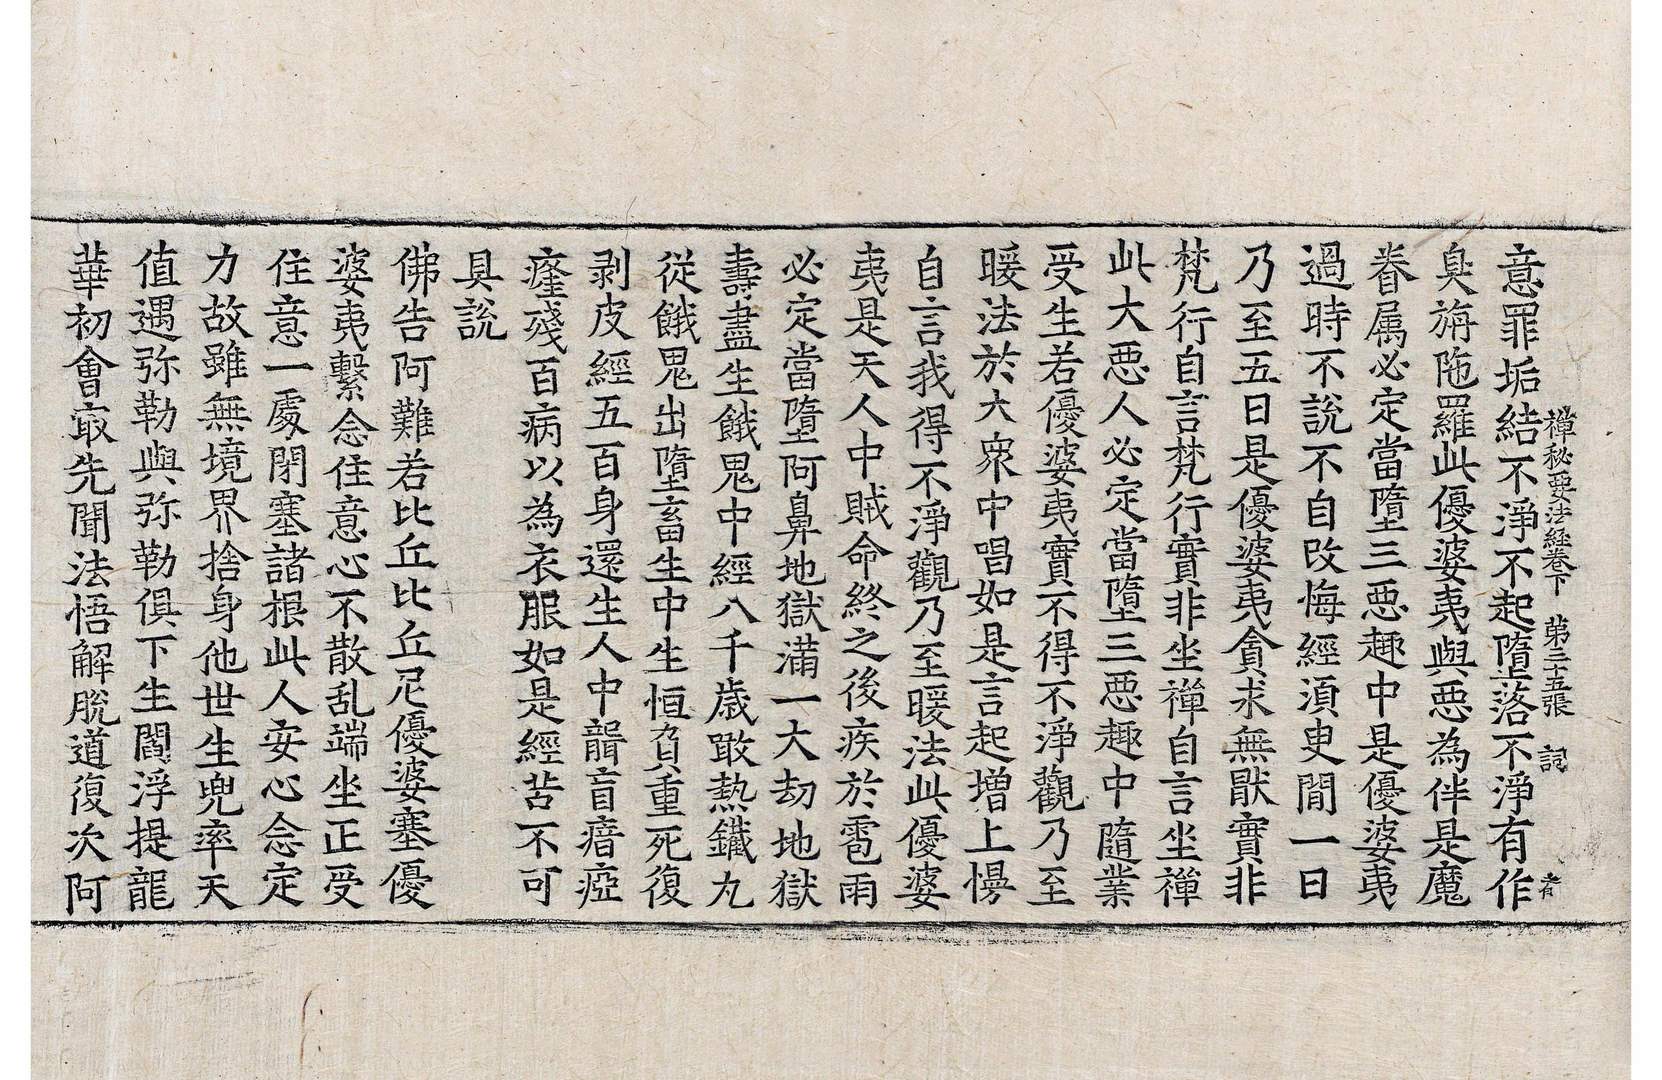 禪秘要法經卷下 第三十五張 詞
意罪垢結不淨不起墮落不淨有作
臭旃陁羅此優婆夷與惡為伴是魔
眷属必定當墮三惡趣中是優婆夷
過時不說不自改悔經須臾閒一日
乃至五日是優婆夷貪求無猒實非
梵行自言梵行實非坐禪自言坐禪
此大惡人必定當墮三惡趣中隨業
受生若優婆夷實不得不淨觀乃至
暖法於大衆中唱如是言起增上慢
自言我得不淨觀乃至暖法此優婆
夷是天人中賊命終之後疾於雹雨
必定當墮阿鼻地獄滿一大劫地獄
壽盡生餓鬼中經八千歳噉熱鐵丸
從餓鬼出墮畜生中生恒負重死復
剥皮經五百身還生人中聾盲瘖瘂
癃殘百病以為衣服如是經苦不可
具說
佛告阿難若比丘比丘尼優婆塞優
婆夷繫念住意心不散乱端坐正受
住意一處閉塞諸根此人安心念定
力故雖無境界捨身他世生兜率天
值遇弥勒與弥勒俱下生閻浮提龍
華初會㝡先聞法悟解脫道復次阿